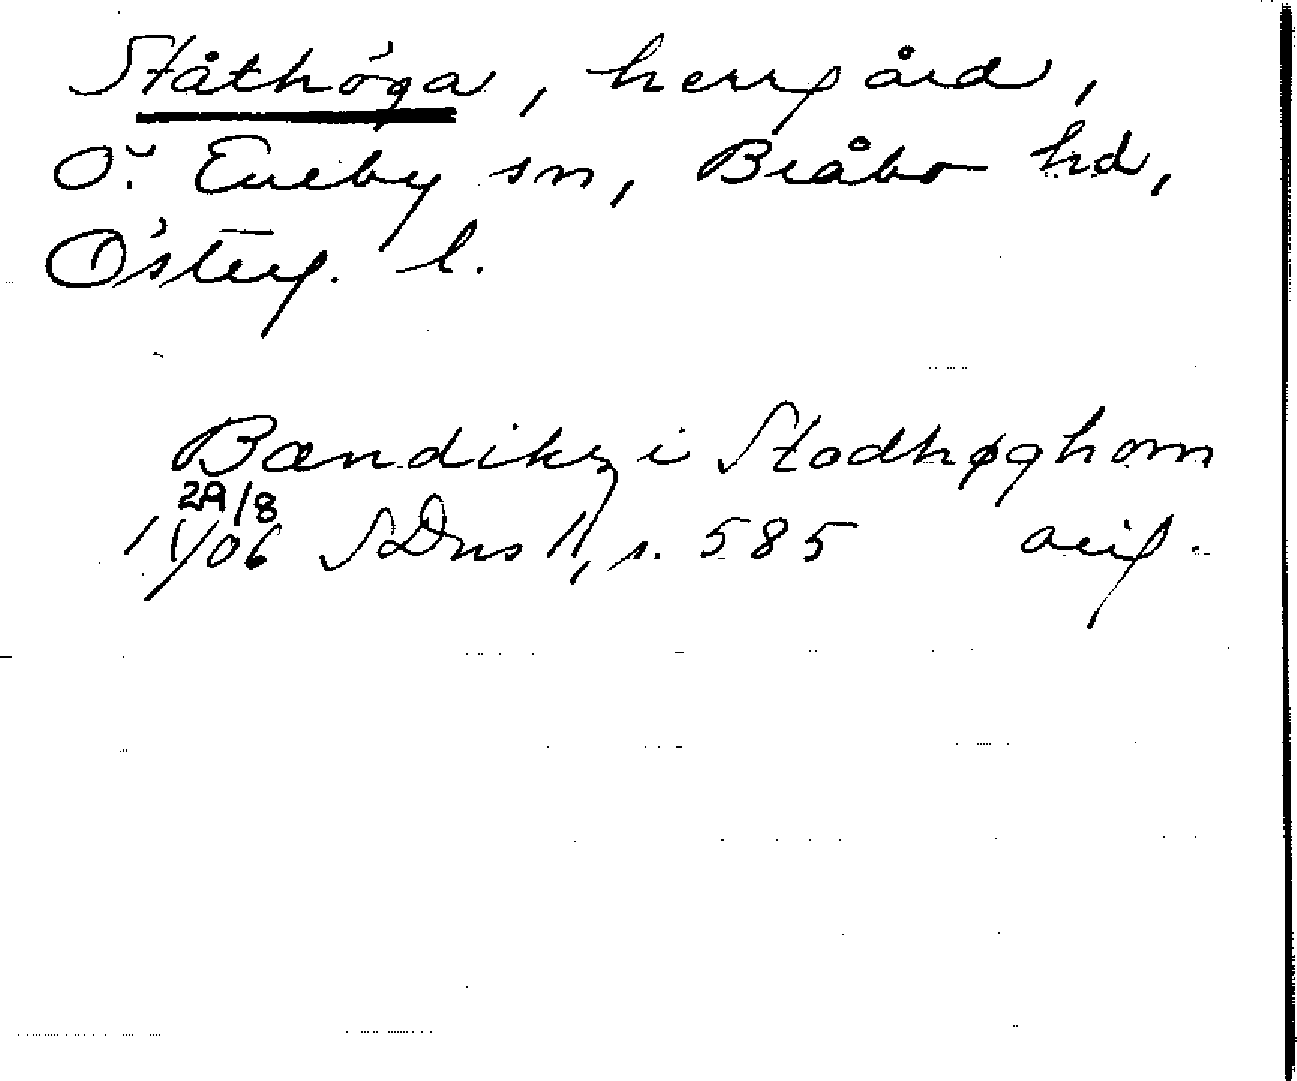 Ståthöga, herrgård,
Ö. Eneby sn, Bråbo hd,
Österg. l.
Bændikz i Stodhøghom
29/8
1406 SDns II, s. 585 avs.